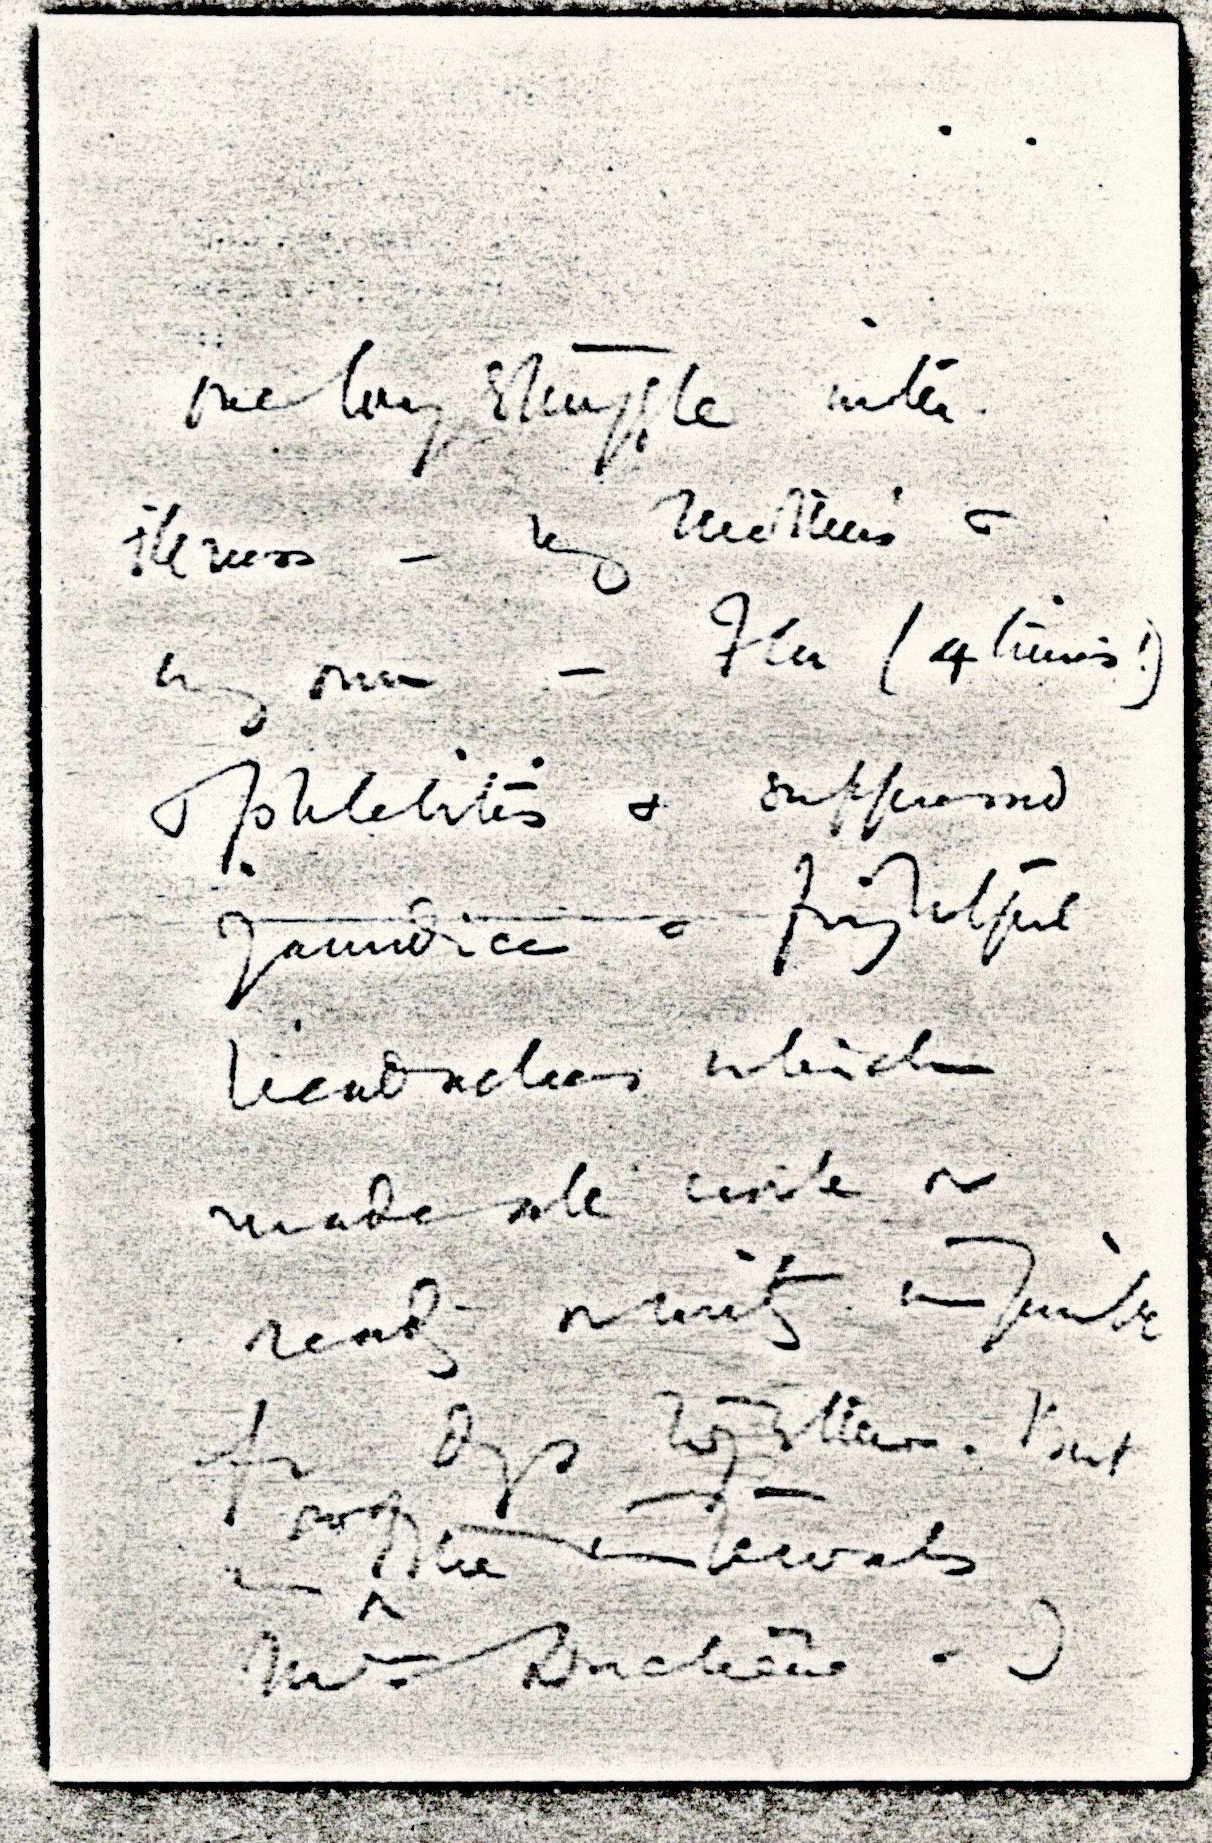 one long struggle with
illness – my mother's &
my own – Flu (4 times!)
& phlebitis & suppressed
jaundice & frightful
headaches which
made all work or
ready writing impossible
for days together. But
in the intervals
Mme Duchêne – I